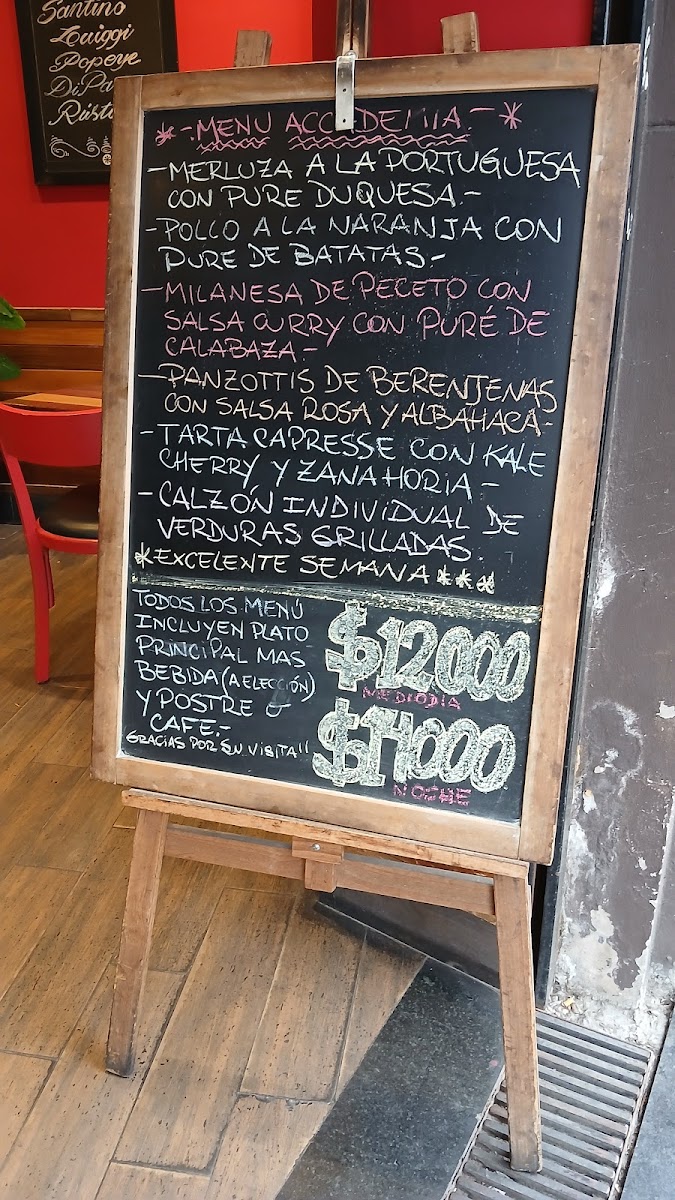 Santino
Luiggi
Popeye
* - MENU ACCADEMIA - *
- MERLUZA A LA PORTUGUESA
CON PURE DUQUESA.-
- POLLO A LA NARANJA CON
PURE DE BATATAS.-
- MILANESA DE PECETO CON
SALSA CURRY CON PURÉ DE
CALABAZA.-
- PANZOTTIS DE BERENJENAS
CON SALSA ROSA Y ALBAHACA-
- TARTA CAPRESSE CON KALE
CHERRY Y ZANAHORIA -
- CALZÓN INDIVIDUAL DE
VERDURAS GRILLADAS
*EXCELENTE SEMANA***
TODOS LOS MENÚ
INCLUYEN PLATO
PRINCIPAL MAS
BEBIDA (A ELECCIÓN)
Y POSTRE Ó
CAFE.-
GRACIAS POR SU VISITA!!
$12000
MEDIODIA
$14000
NOCHE